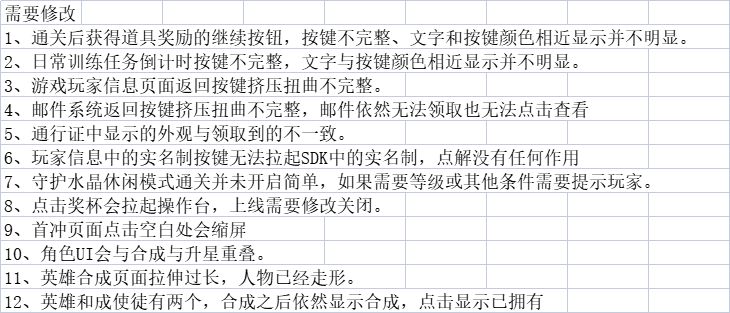 需要修改
1、通关后获得道具奖励的继续按钮，按键不完整、文字和按键颜色相近显示并不明显。
2、日常训练任务倒计时按键不完整，文字与按键颜色相近显示并不明显。
3、游戏玩家信息页面返回按键挤压扭曲不完整。
4、邮件系统返回按键挤压扭曲不完整，邮件依然无法领取也无法点击查看
5、通行证中显示的外观与领取到的不一致。
6、玩家信息中的实名制按键无法拉起SDK中的实名制，点解没有任何作用
7、守护水晶休闲模式通关并未开启简单，如果需要等级或其他条件需要提示玩家。
8、点击奖杯会拉起操作台，上线需要修改关闭。
9、首冲页面点击空白处会缩屏
10、角色UI会与合成与升星重叠。
11、英雄合成页面拉伸过长，人物已经走形。
12、英雄和成使徒有两个，合成之后依然显示合成，点击显示已拥有